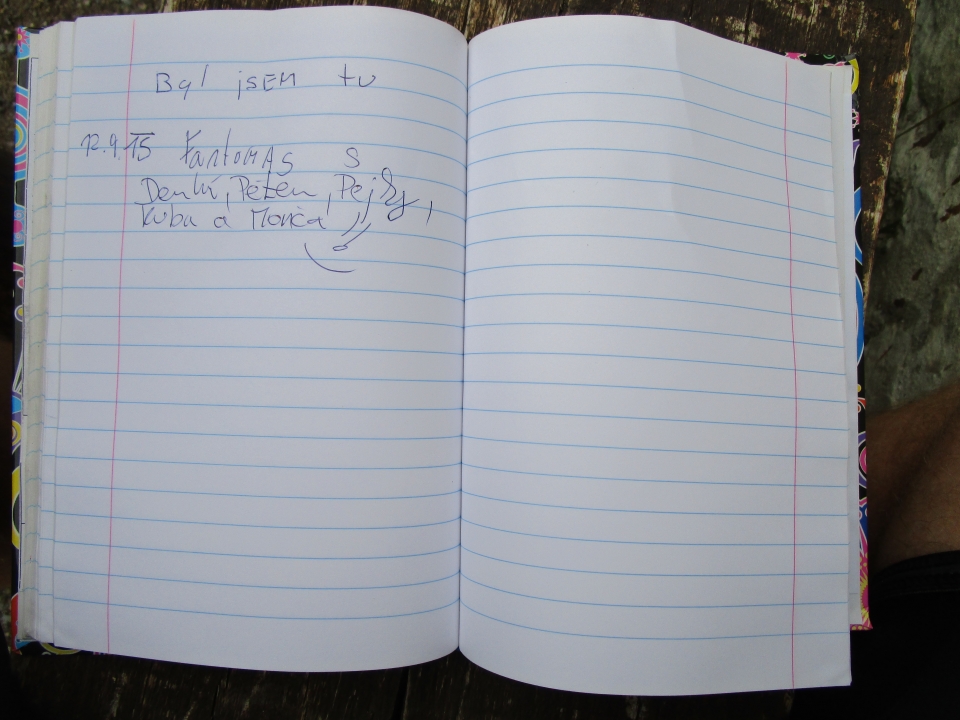 Byl jsEM tu
12.9.15 FantomAS S
Denků, Péťem, Pejly,
Kuba a Monča